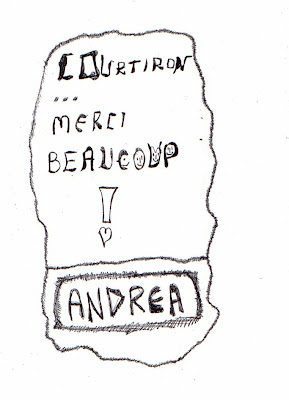 COURTIRON
...
MERCI
BEAUCOUP
!
ANDREA